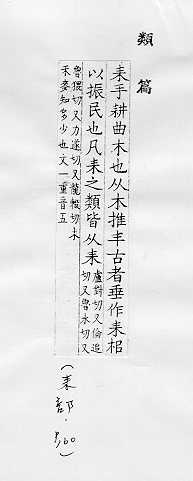 類篇
耒手耕曲木也从木推丰古者垂作耒枱
以振民也凡耒之類皆从耒盧對切又倫追
切又魯水切又
魯猥切又力遂切又龍輟切木
禾麥知多少也文一重音五
(耒部.160)